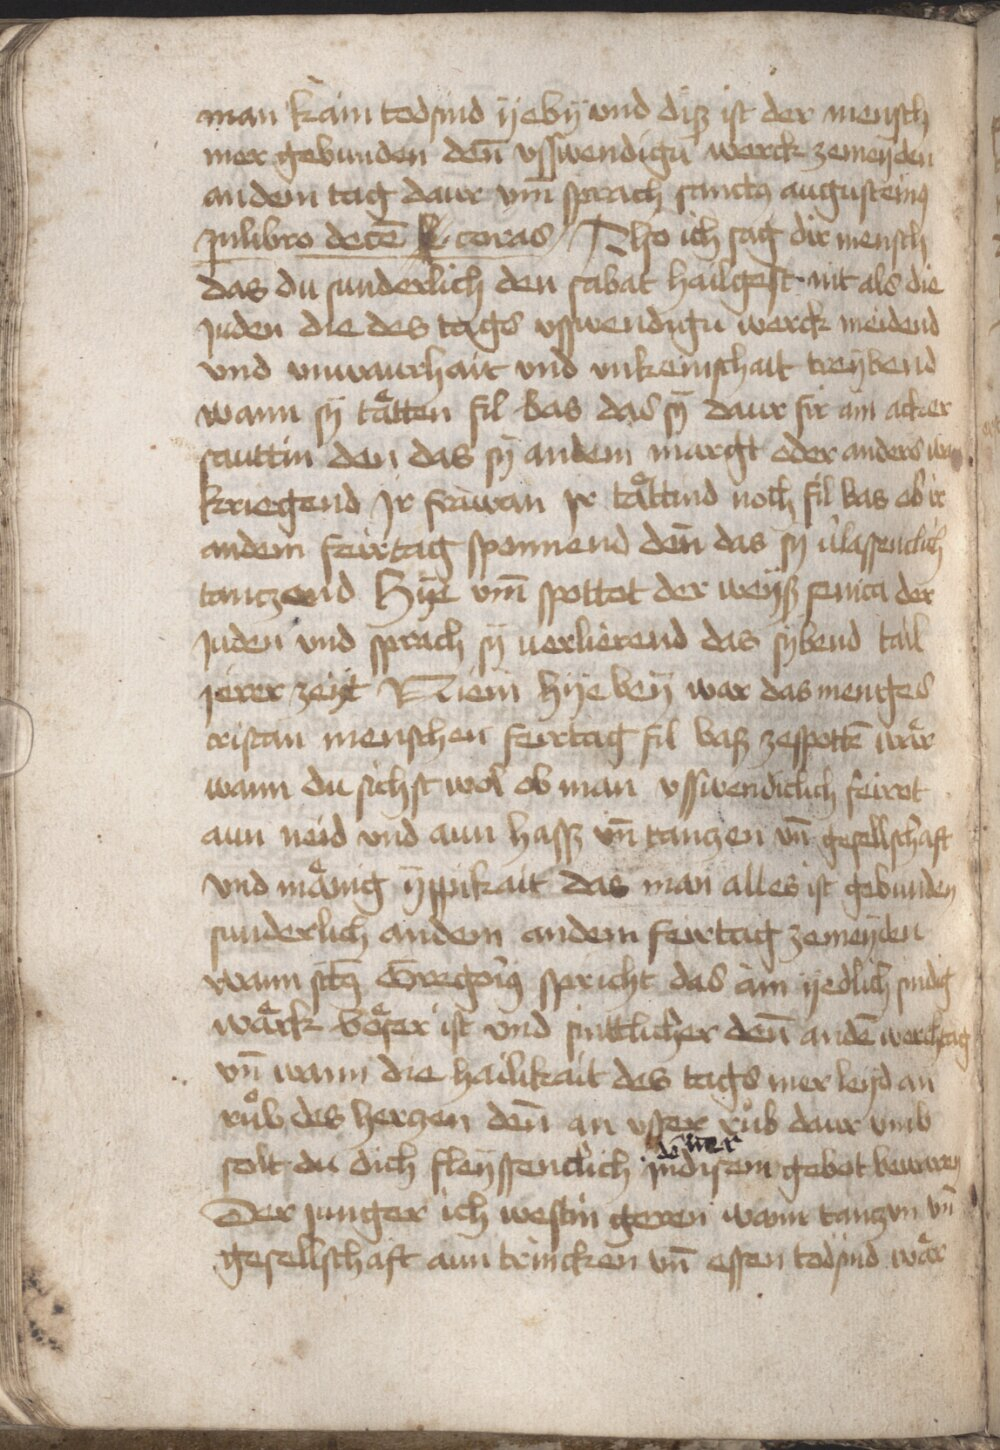 man kain todsind ÿeby und disz ist der mensch
mer gebunden den̄ vsswendigu werck zemeÿden
an dem tag daur vm̄ sprach sanctus augusteinus
in libro decē coras Also ich sag dir mensch
das du sunderlich den sabat hailgest nit als die
juden die des tags vsswendigu werck meidend
vnd vnwaurhait vnd vnkeinschait treÿbend
wann sÿ tåtten fil bas das sÿ daur fir ain acker
sauttin den das sÿ an dem margt oder anders wa
kriegend Jr frawan jr tåttind noch fil bas ob ir
an dem feirtag spannend den̄ das sÿ ulassenclich
tantzend Hÿe vm̄ spottet der weÿsz senica der
juden vnd sprach sÿ verlierend das sÿbend tail
jerer zeit Niem hÿe beÿ war das menges
cristan menschen feirtag fil basz zespottē wår
wann du sichst wol ob man vsswendiclich feirot
aun neid vnd aun hassz vn̄ tantzen vn̄ gesellschaft
vnd månig ÿppikait das man alles ist gebunden
sunderlich an dem an dem feirtag zemeÿden
wann sctus Gregorius spricht das ain ÿedlich sindig
wårk böser ist vnd sinttlicher den̄ an dē werchtag
vn̄ wann die hailikait des tags mer leÿd an
růb des hertzen den̄ an vsser růb daur vmb
solt du dich fleÿssenclich in disem gebot bewaren
Der junger ich westin geren wann tantzen vn̄
gesellschaft aun trincken vn̄ essen todsind wår